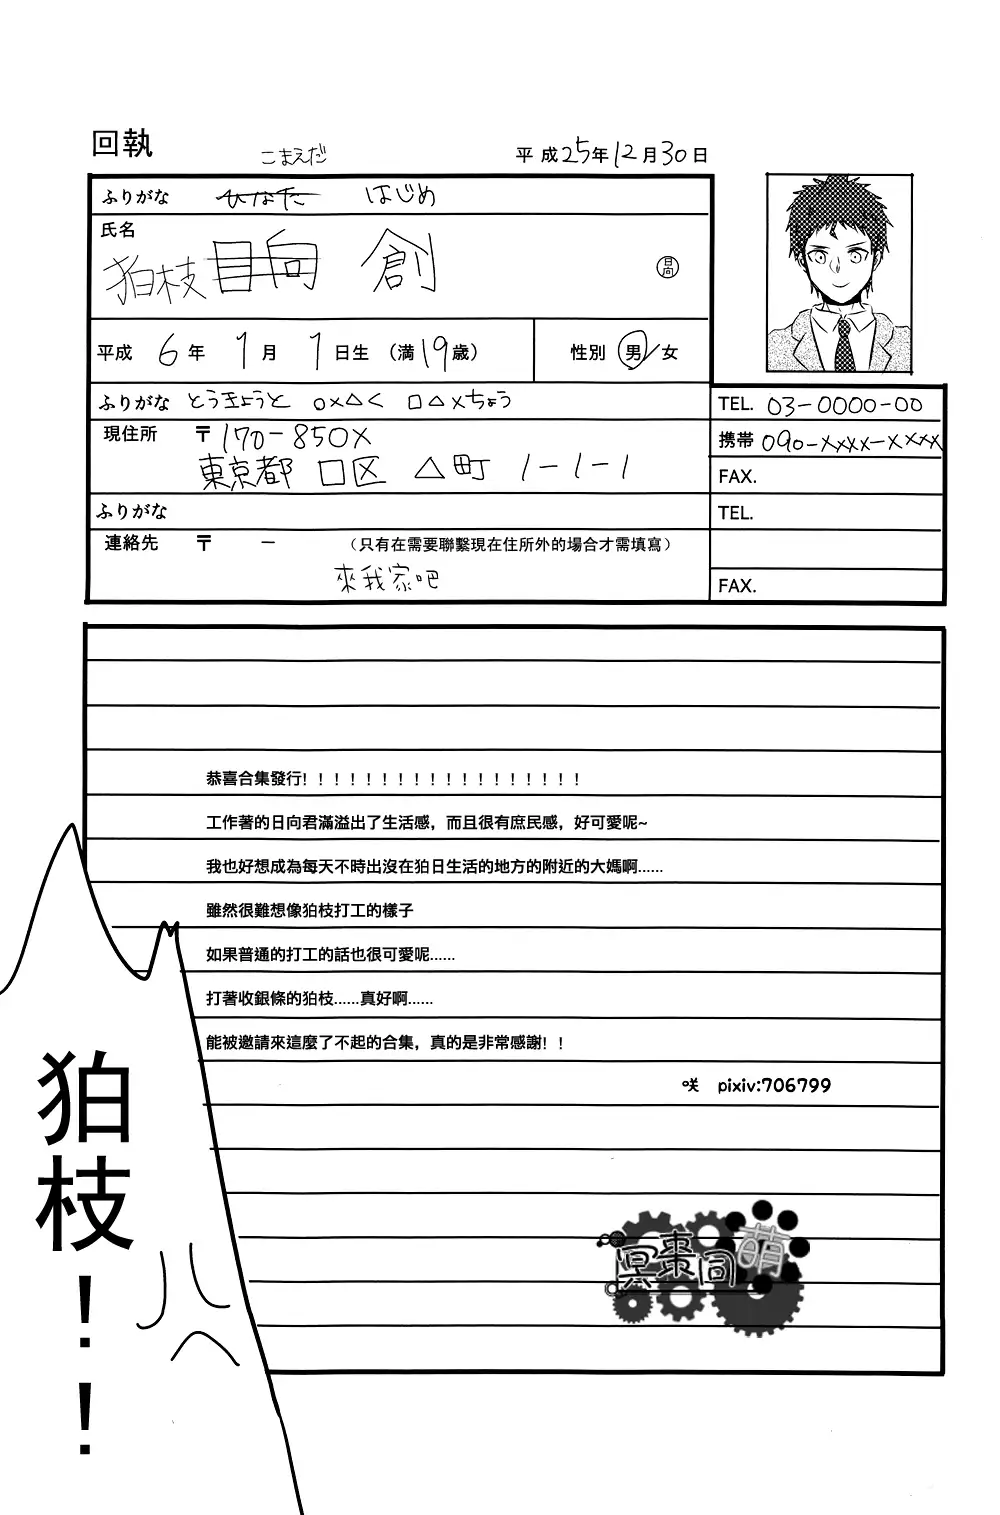 回執
こまえだ
平成25年12月30日
ふりがな ひなた はじめ
氏名
狛枝 日向 創
日向
平成 6年 1月 1日生 (満19歳) 性別 男/女
ふりがな とうきょうと ○×△く □△×ちょう
TEL. 03-0000-00
現住所 〒170-850X
東京都 口区 △町 1-1-1
携帯 090-xxxx-xxxx
FAX.
ふりがな
TEL.
連絡先 〒 － (只有在需要聯繫現在住所外的場合才需填寫)
來我家吧
FAX.
恭喜合集發行! ! ! ! ! ! ! ! ! ! ! ! ! ! ! ! ! !
工作著的日向君滿溢出了生活感，而且很有庶民感，好可愛呢~
我也好想成為每天不時出沒在狛日生活的地方的附近的大媽啊......
雖然很難想像狛枝打工的樣子
如果普通的打工的話也很可愛呢......
打著收銀條的狛枝......真好啊......
能被邀請來這麼了不起的合集，真的是非常感謝! !
咲 pixiv:706799
狛枝！！
冥棗同萌